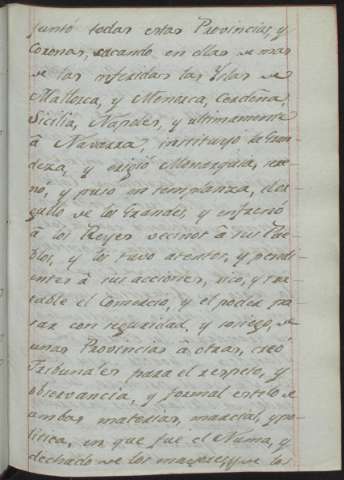 juntó todas estas Provincias, y
Coronas, sacando, en ellas de mas
de las referidas las Yslas de
Mallorca, y Menorca, Cerdeña,
Sicilia, Napoles, y ultimamente
â Navarra, instituyó la Gran-
deza, y erigió Monarquia, re-
nó, y puso en templanza, el or-
gullo de los Grandes, y enseñó
â los Reyes vecinos â sus Pue-
blos, y los tuvo atentos, y pendi-
entes â sus acciones, rico, y tra-
table el Comercio, y el poder pa-
sar con seguridad, y sosiego, de
unas Provincias â otras, creó
Tribunales para el respeto, y
observancia, y formal estilo de
ambas materias, marcial, y po-
litica, en que fue el Numa, y
dechado de los mayores, y de los